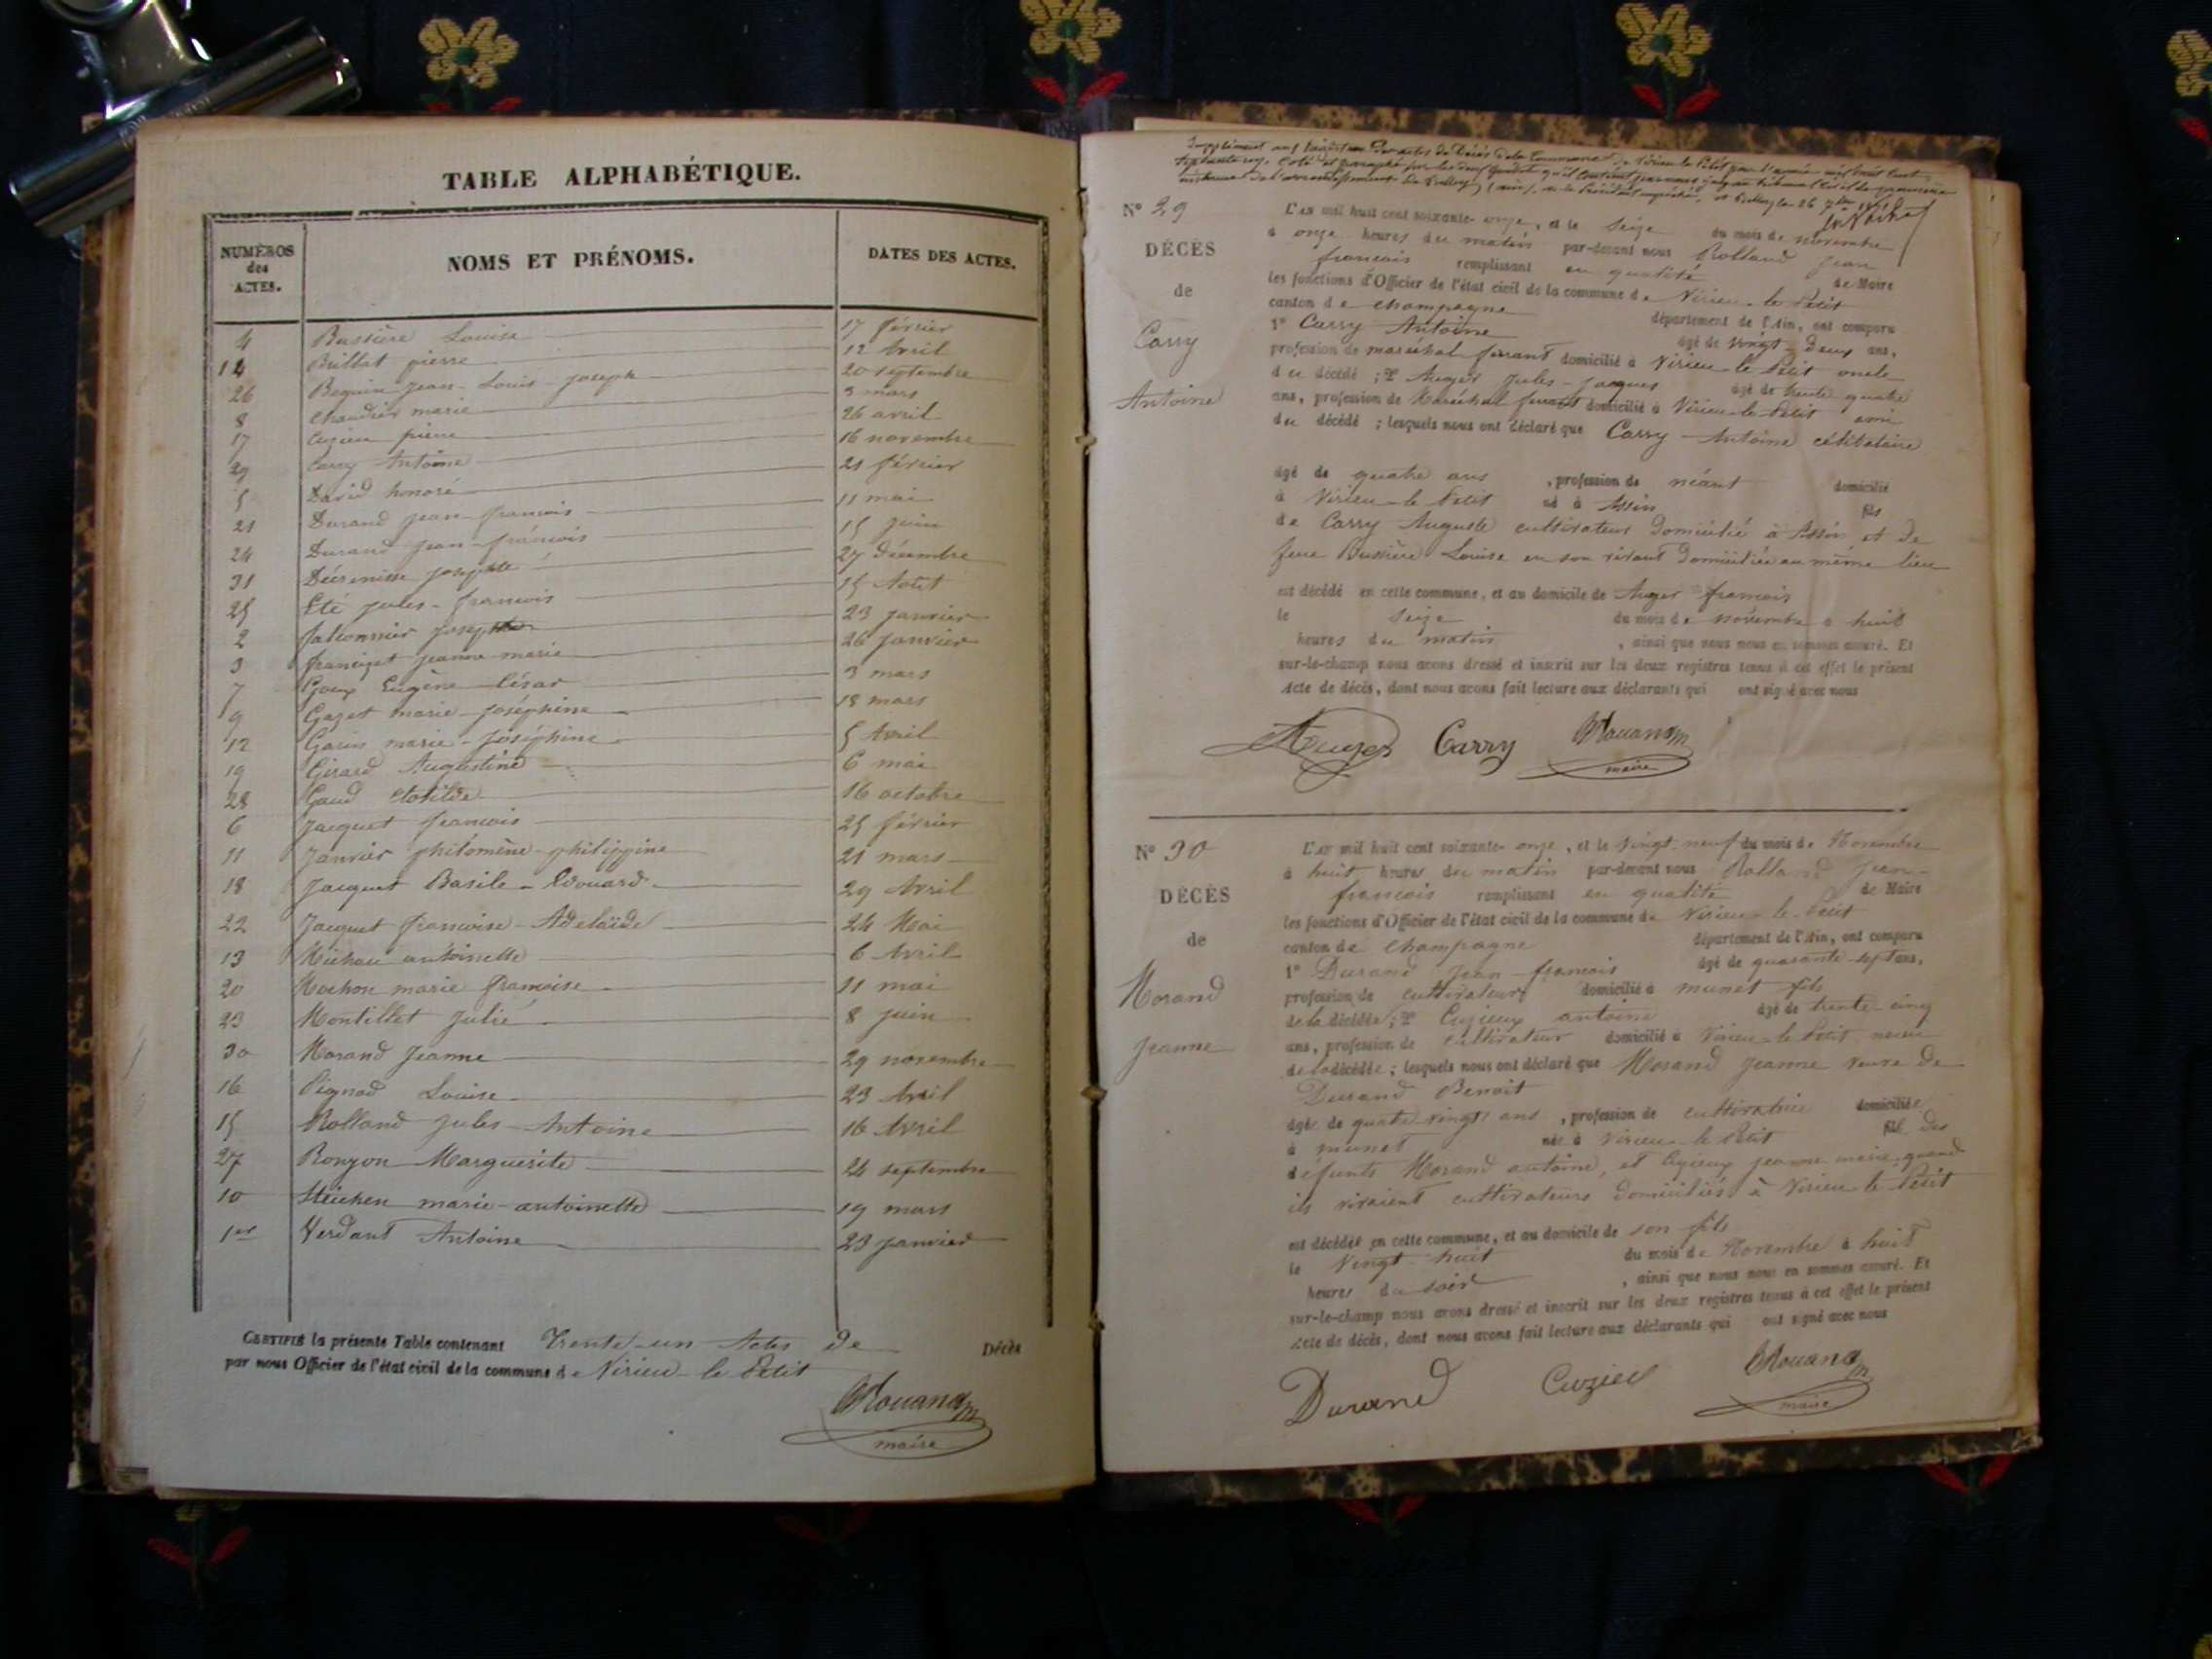 TABLE ALPHABÉTIQUE.
NUMÉROS des ACTES. NOMS ET PRÉNOMS. DATES DES ACTES.
4 Bussière Louise 17 février
14 Brillat pierre 12 Avril
26 Beguin Jean-Louis-Joseph 20 septembre
8 Chaudier marie 3 mars
17 Cuzieu pierre 26 avril
29 Carry Antoine 16 novembre
5 David honoré 21 février
21 Durand Jean-francois 11 mai
24 Durand Jean-francois 15 Juin
31 Josephte 27 décembre
25 Eté Jules-francois 15 Août
2 falconnier Joseph 23 Janvier
3 Jeanne marie 26 Janvier
7 Goux Eugène César 3 mars
9 Gazet marie-Joséphine 18 mars
12 Garin marie-Joséphine 5 Avril
19 Girard Augustine 6 mai
28 Gaud Clotilde 16 octobre
6 Jacquet francois 25 février
11 Janvier philomène-philippine 21 mars
18 Jacquet Basile-Edouard 29 Avril
22 Jacquet francoise-Adelaïde 24 Mai
13 Michau antoinette 6 Avril
20 Mochon marie francoise 11 mai
23 Montillet Julie 8 Juin
30 Morand Jeanne 29 novembre
16 Pignod Louise 23 Avril
15 Rolland Jules-Antoine 16 Avril
27 Ronzon Marguerite 24 septembre
10 Steichen marie-antoinette 19 mars
1er Verdant Antoine 23 Janvier
CERTIFIÉ la présente Table contenant Trente-un Actes de Décès
par nous Officier de l'état civil de la commune de Virieu-le-Petit
Rolland
maire
Supplément aux registres des actes de Décès de la Commune de Virieu le Petit pour l'année mil huit cent
N° 29
DÉCÈS
de
Carry
Antoine
L'an mil huit cent soixante-onze, et le seize du mois de novembre
à onze heures du matin par-devant nous Rolland Jean
francois remplissant en qualité de Maire
les fonctions d'Officier de l'état civil de la commune de Virieu-le-Petit
canton de Champagne département de l'Ain, ont comparu
1° Carry Antoine âgé de vingt-deux ans,
profession de maréchal ferrant domicilié à Virieu-le-Petit oncle
du décédé ; 2° Auger Jules-Jacques âgé de trente quatre
ans, profession de Maréchal ferrant domicilié à Virieu-le-Petit ami
du décédé ; lesquels nous ont déclaré que Carry Antoine célibataire
âgé de quatre ans, profession de néant domicilié
à Virieu-le-Petit né à Assin fils
de Carry Auguste cultivateur domicilié à Assin et de
feue Bussière Louise en son vivant domiciliée au même lieu
est décédé en cette commune, et au domicile de Auger francois
le seize du mois de novembre à huit
heures du matin, ainsi que nous nous en sommes assuré. Et
sur-le-champ nous avons dressé et inscrit sur les deux registres tenus à cet effet le présent
Acte de décès, dont nous avons fait lecture aux déclarants qui ont signé avec nous
Auger Carry Rolland
maire
N° 30
DÉCÈS
de
Morand
Jeanne
L'an mil huit cent soixante-onze, et le vingt-neuf du mois de Novembre
à huit heures du matin par-devant nous Rolland Jean-
francois remplissant en qualité de Maire
les fonctions d'Officier de l'état civil de la commune de Virieu-le-Petit
canton de Champagne département de l'Ain, ont comparu
1° Durand Jean-francois âgé de quarante-sept ans,
profession de cultivateur domicilié à munet fils
de la décédée ; 2° Cuzieux antoine âgé de trente cinq
ans, profession de cultivateur domicilié à Virieu-le-Petit neveu
de la décédée ; lesquels nous ont déclaré que Morand Jeanne veuve de
Durand Benoit
âgée de quatre-vingt ans, profession de cultivatrice domiciliée
à munet née à Virieu-le-Petit fille des
défunts Morand antoine, et Cuzieux Jeanne marie, quand
ils vivaient cultivateurs domiciliés à Virieu-le-Petit
est décédée en cette commune, et au domicile de son fils
le Vingt-huit du mois de Novembre à huit
heures du soir, ainsi que nous nous en sommes assuré. Et
sur-le-champ nous avons dressé et inscrit sur les deux registres tenus à cet effet le présent
Acte de décès, dont nous avons fait lecture aux déclarants qui ont signé avec nous
Durand Cuzieu Rolland
maire